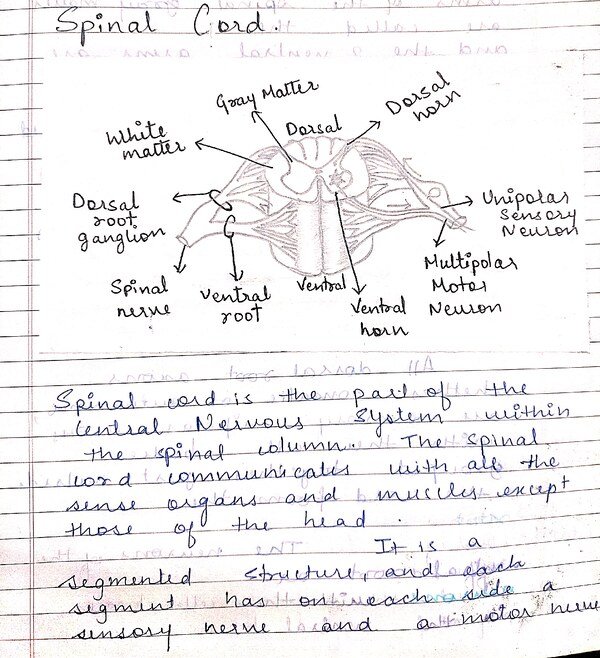 Spinal Cord.
Gray Matter
Dorsal horn
White matter
Dorsal
Dorsal root ganglion
Unipolar Sensory Neuron
Spinal nerve
Ventral root
Ventral
Ventral horn
Multipolar Motor Neuron
Spinal cord is the part of the
Central Nervous System within
the spinal column. The spinal
cord communicates with all the
sense organs and muscles except
those of the head.
It is a
segmented structure and each
segment has on each side a
sensory nerve and a motor nerve